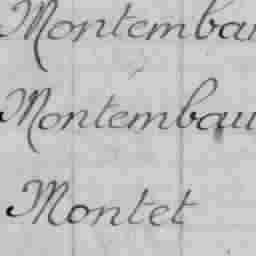 Montembau
Montembau
Montet